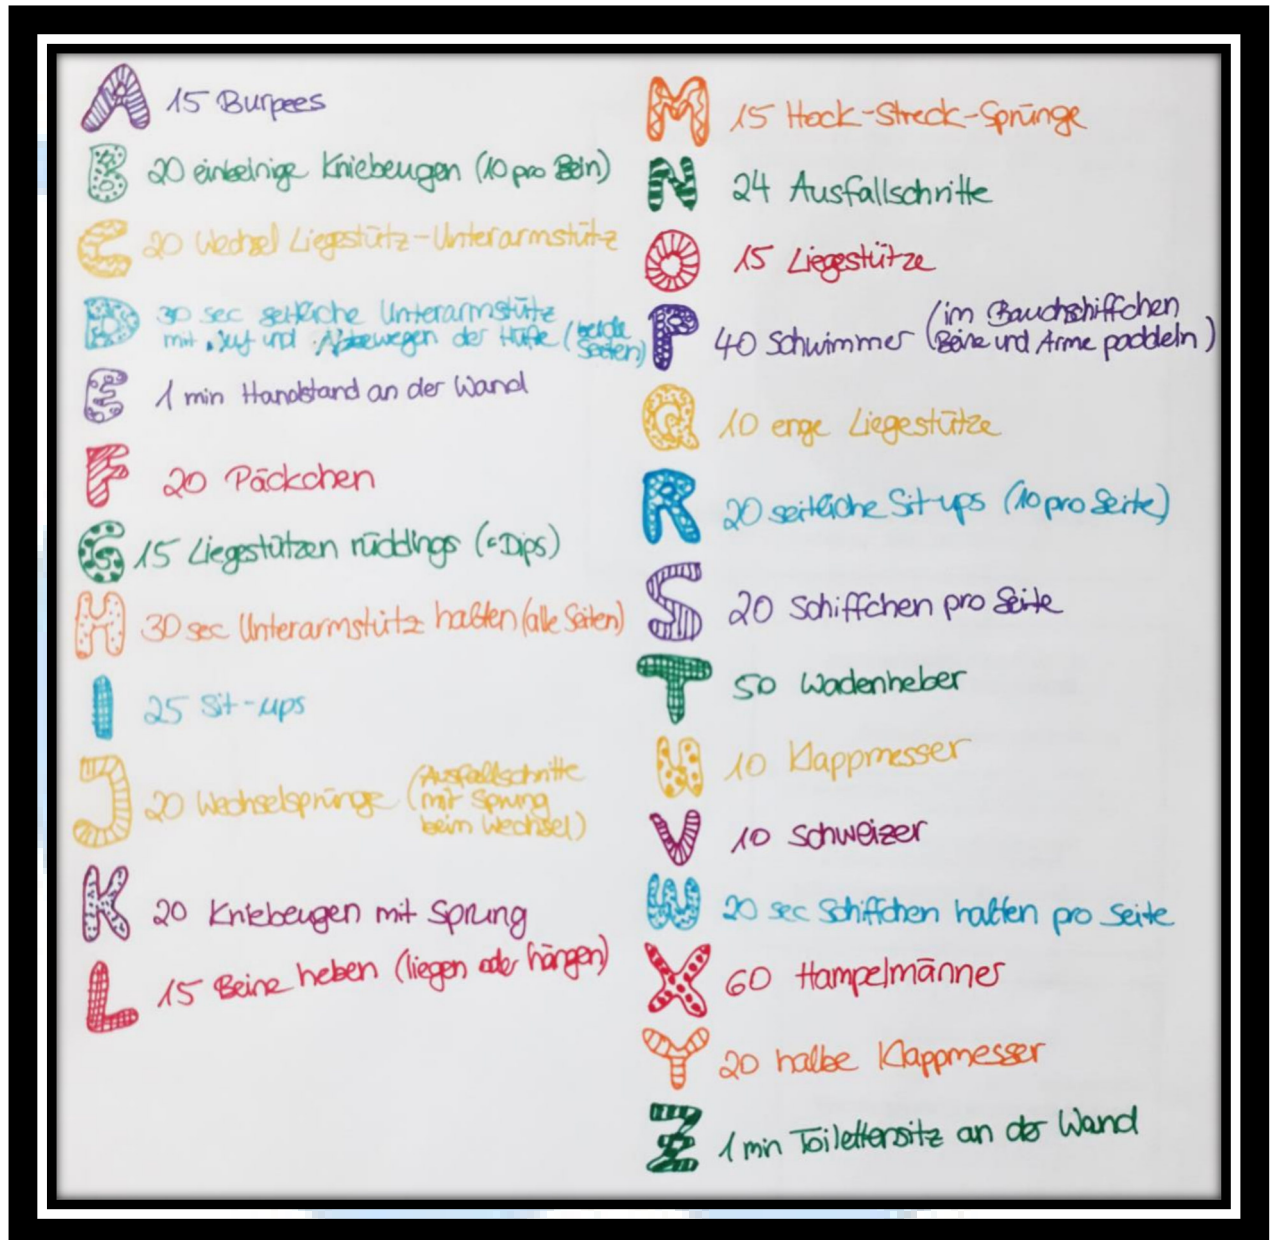 A 15 Burpees
B 20 einbeinige Kniebeugen (10 pro Bein)
C 20 Wechsel Liegestütz-Unterarmstütz
D 30 sec seitliche Unterarmstütz
mit Auf und Abbewegen der Hüfte (beide
Seiten)
E 1 min Handstand an der Wand
F 20 Päckchen
G 15 Liegestützen rücklings (=Dips)
H 30 sec Unterarmstütz halten (alle Seiten)
I 25 Sit-ups
J 20 Wechselsprünge (Ausfallschritte
mit Sprung
beim Wechsel)
K 20 Kniebeugen mit Sprung
L 15 Beine heben (liegen oder hängen)
M 15 Hock-Streck-Sprünge
N 24 Ausfallschritte
O 15 Liegestütze
P 40 Schwimmer (im Bauchschiffchen
Beine und Arme paddeln)
Q 10 enge Liegestütze
R 20 seitliche Sit-ups (10 pro Seite)
S 20 Schiffchen pro Seite
T 50 Wadenheber
U 10 Klappmesser
V 10 Schweizer
W 20 sec Schiffchen halten pro Seite
X 60 Hampelmänner
Y 20 halbe Klappmesser
Z 1 min Toilettensitz an der Wand